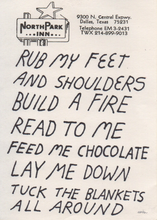 NORTHPARK
INN
9300 N. Central Expwy.
Dallas, Texas 75231
Telephone EM 3-2431
TWX 214-899-9013
RUB MY FEET
AND SHOULDERS
BUILD A FIRE
READ TO ME
FEED ME CHOCOLATE
LAY ME DOWN
TUCK THE BLANKETS
ALL AROUND